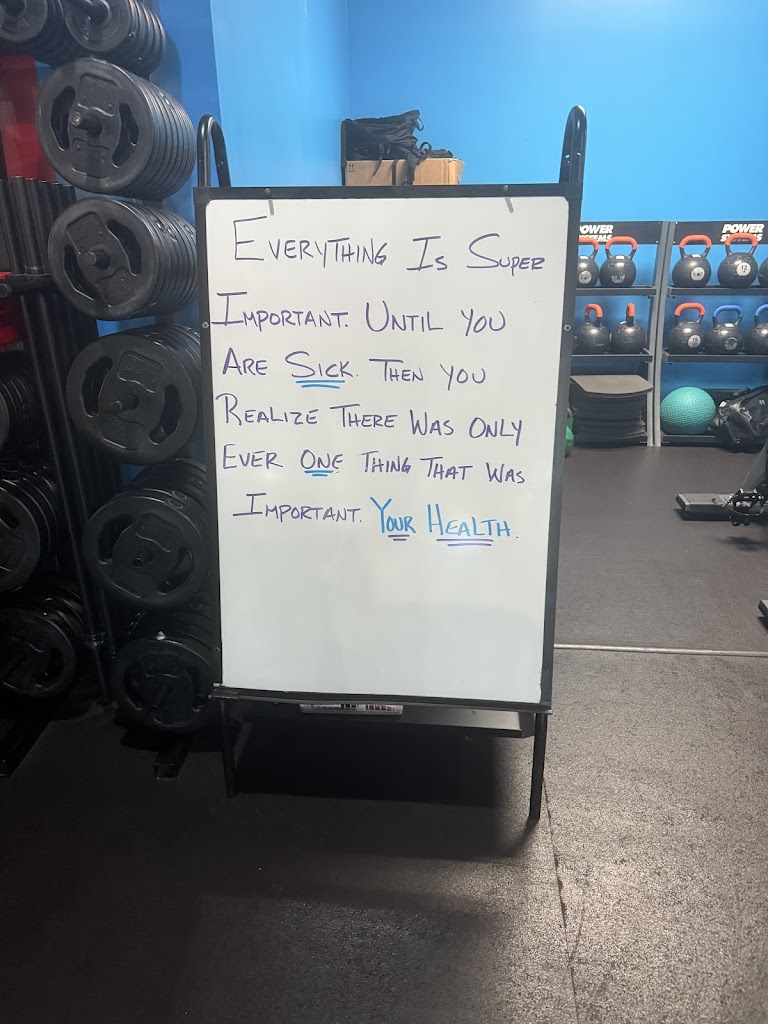 Everything Is Super
Important. Until you
Are Sick. Then you
Realize There Was Only
Ever One Thing That Was
Important. Your Health.
POWER
SYSTEMS
POWER
SYSTEMS